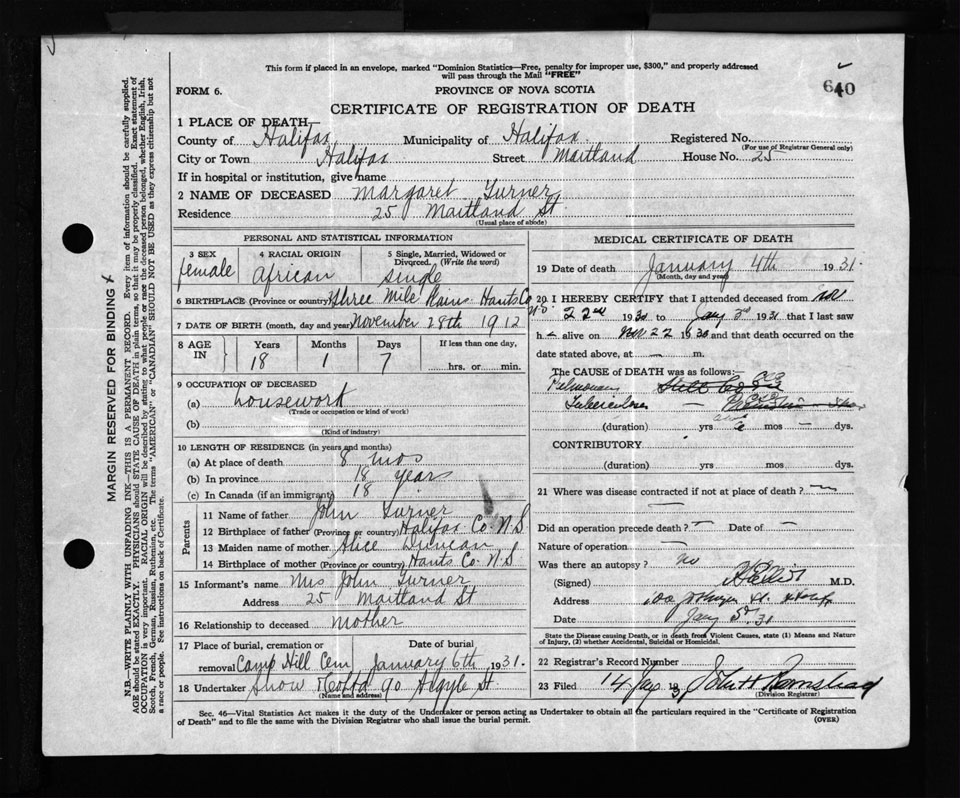 This form if placed in an envelope, marked "Dominion Statistics—Free, penalty for improper use, $300," and properly addressed
will pass through the Mail "FREE"
640
FORM 6.
PROVINCE OF NOVA SCOTIA
CERTIFICATE OF REGISTRATION OF DEATH
1 PLACE OF DEATH
County of Halifax Municipality of Halifax Registered No.
(For use of Registrar General only)
City or Town Halifax Street Maitland House No. 25
If in hospital or institution, give name
2 NAME OF DECEASED Margaret Turner
Residence 25 Maitland St
(Usual place of abode)
PERSONAL AND STATISTICAL INFORMATION
3 SEX female
4 RACIAL ORIGIN African
5 Single, Married, Widowed or Divorced. (Write the word) single
6 BIRTHPLACE (Province or country) Three Mile Plains Hants Co N.S.
7 DATE OF BIRTH (month, day and year) November 28th 1912
8 AGE IN Years 18 Months 1 Days 7 If less than one day, hrs. or min.
9 OCCUPATION OF DECEASED
(a) housework
(Trade or occupation or kind of work)
(b)
(Kind of industry)
10 LENGTH OF RESIDENCE (in years and months)
(a) At place of death 8 mos
(b) In province 18 years
(c) In Canada (if an immigrant) 18
Parents
11 Name of father John Turner
12 Birthplace of father (Province or country) Halifax Co N.S
13 Maiden name of mother Alice Duncan
14 Birthplace of mother (Province or country) Hants Co N.S
15 Informant's name Mrs John Turner
Address 25 Maitland St
16 Relationship to deceased mother
17 Place of burial, cremation or removal Camp Hill Cem Date of burial January 6th, 1931.
18 Undertaker Snow & Co Ltd 90 Argyle St.
(Name and address)
MEDICAL CERTIFICATE OF DEATH
19 Date of death January 4th 1931.
(Month, day and year)
20 I HEREBY CERTIFY that I attended deceased from Nov
22nd 1930 to Jany 3rd 1931 that I last saw
h alive on Nov 22 1930 and that death occurred on the
date stated above, at — m.
The CAUSE OF DEATH was as follows:—
Pulmonary
Tuberculosis
(duration) yrs mos — dys.
CONTRIBUTORY
(duration) yrs mos dys.
21 Where was disease contracted if not at place of death? —
Did an operation precede death? — Date of —
Nature of operation —
Was there an autopsy? no
(Signed) M.D.
Address
Date Jany 5. 31
State the Disease causing Death, or in death from Violent Causes, state (1) Means and Nature
of Injury, (2) whether Accidental, Suicidal or Homicidal.
22 Registrar's Record Number
23 Filed 14 Jany 193
(Division Registrar)
Sec. 46—Vital Statistics Act makes it the duty of the Undertaker or person acting as Undertaker to obtain all the particulars required in the "Certificate of Registration
of Death" and to file the same with the Division Registrar who shall issue the burial permit.
(OVER)
MARGIN RESERVED FOR BINDING
N.B.—WRITE PLAINLY WITH UNFADING INK—THIS IS A PERMANENT RECORD. Every item of information should be carefully supplied.
AGE should be stated EXACTLY. PHYSICIANS should STATE CAUSE OF DEATH in plain terms, so that it may be properly classified. Exact statement of
OCCUPATION is very important. RACIAL ORIGIN will be described by stating to what people or race the deceased person belonged, whether English, Irish,
Scotch, French, German, Russian, Ruthenian, etc. The terms "AMERICAN" or "CANADIAN" SHOULD NOT BE USED as they express citizenship but not
a race or people. See instructions on back of Certificate.